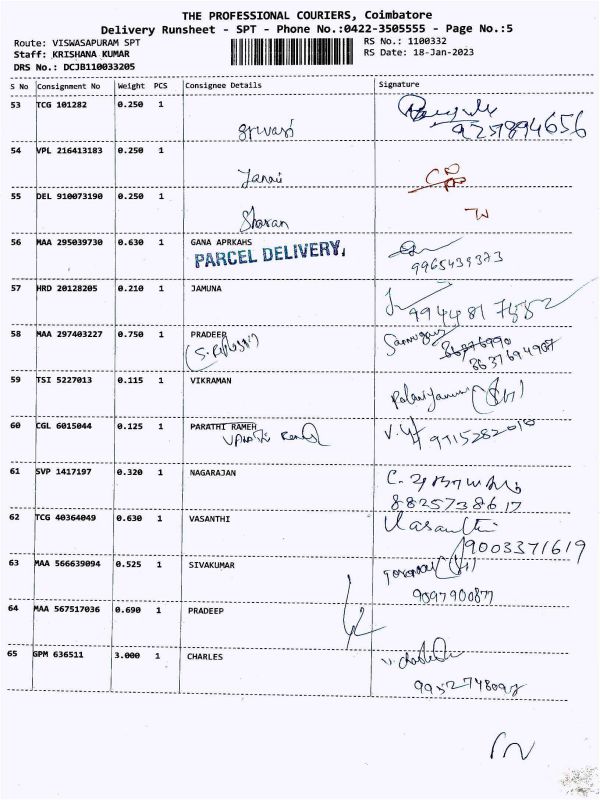 THE PROFESSIONAL COURIERS, Coimbatore
Delivery Runsheet - SPT - Phone No.:0422-3505555 - Page No.:5
Route: VISWASAPURAM SPT RS No.: 1100332
Staff: KRISHANA KUMAR RS Date: 18-Jan-2023
DRS No.: DCJB110033205
S No Consignment No Weight PCS Consignee Details Signature
53 TCG 101282 0.250 1
9257894656
54 VPL 216413183 0.250 1
55 DEL 910073190 0.250 1
Sharan
56 MAA 295039730 0.630 1 GANA APRKAHS
PARCEL DELIVERY.
9965439373
57 HRD 20128205 0.210 1 JAMUNA
9944817552
58 MAA 297403227 0.750 1 PRADEEP
8637694907
59 TSI 5227013 0.115 1 VIKRAMAN
60 CGL 6015044 0.125 1 PARATHI RAMEH
61 SVP 1417197 0.320 1 NAGARAJAN
8825738617
62 TCG 40364049 0.630 1 VASANTHI Vasanthi
9003371619
63 MAA 566639094 0.525 1 SIVAKUMAR
64 MAA 567517036 0.690 1 PRADEEP
65 GPM 636511 3.000 1 CHARLES